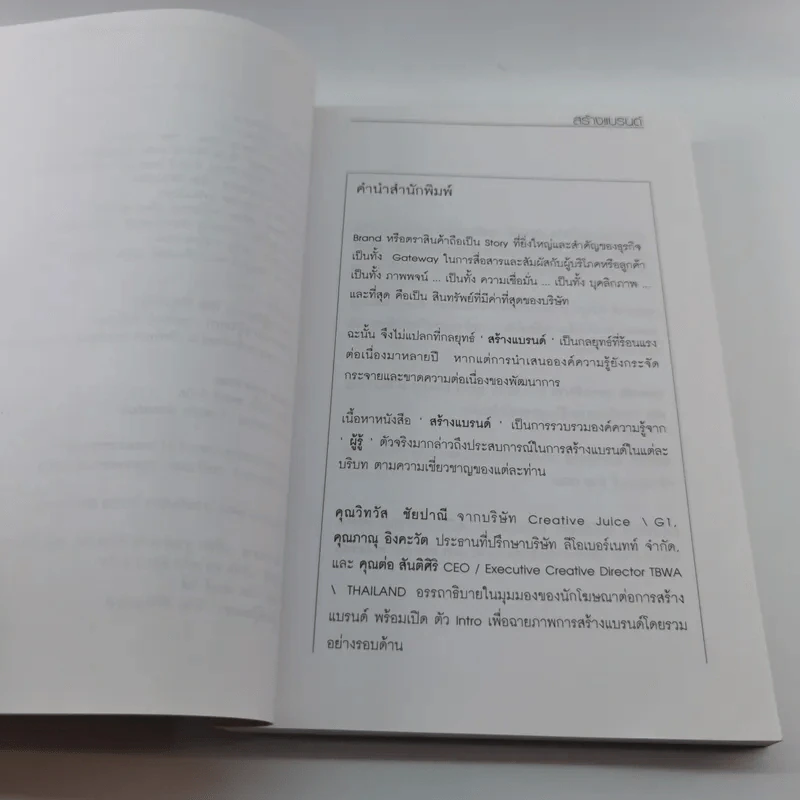 สร้างแบรนด์
คำนำสำนักพิมพ์
Brand หรือตราสินค้าถือเป็น Story ที่ยิ่งใหญ่และสำคัญของธุรกิจ
เป็นทั้ง Gateway ในการสื่อสารและสัมผัสกับผู้บริโภคหรือลูกค้า
เป็นทั้ง ภาพพจน์ ... เป็นทั้ง ความเชื่อมั่น ... เป็นทั้ง บุคลิกภาพ ...
และที่สุด คือเป็น สินทรัพย์ที่มีค่าที่สุดของบริษัท
ฉะนั้น จึงไม่แปลกที่กลยุทธ์ ' สร้างแบรนด์ ' เป็นกลยุทธ์ที่ร้อนแรง
ต่อเนื่องมาหลายปี หากแต่การนำเสนอองค์ความรู้ยังกระจัด
กระจายและขาดความต่อเนื่องของพัฒนาการ
เนื้อหาหนังสือ ' สร้างแบรนด์ ' เป็นการรวบรวมองค์ความรู้จาก
' ผู้รู้ ' ตัวจริงมากล่าวถึงประสบการณ์ในการสร้างแบรนด์ในแต่ละ
บริบท ตามความเชี่ยวชาญของแต่ละท่าน
คุณวิทวัส ชัยปาณี จากบริษัท Creative Juice \ G1,
คุณภาณุ อิงคะวัต ประธานที่ปรึกษาบริษัท ลีโอเบอร์เนทท์ จำกัด,
และ คุณต่อ สันติศิริ CEO / Executive Creative Director TBWA
\ THAILAND อรรถาธิบายในมุมมองของนักโฆษณาต่อการสร้าง
แบรนด์ พร้อมเปิด ตัว Intro เพื่อฉายภาพการสร้างแบรนด์โดยรวม
อย่างรอบด้าน